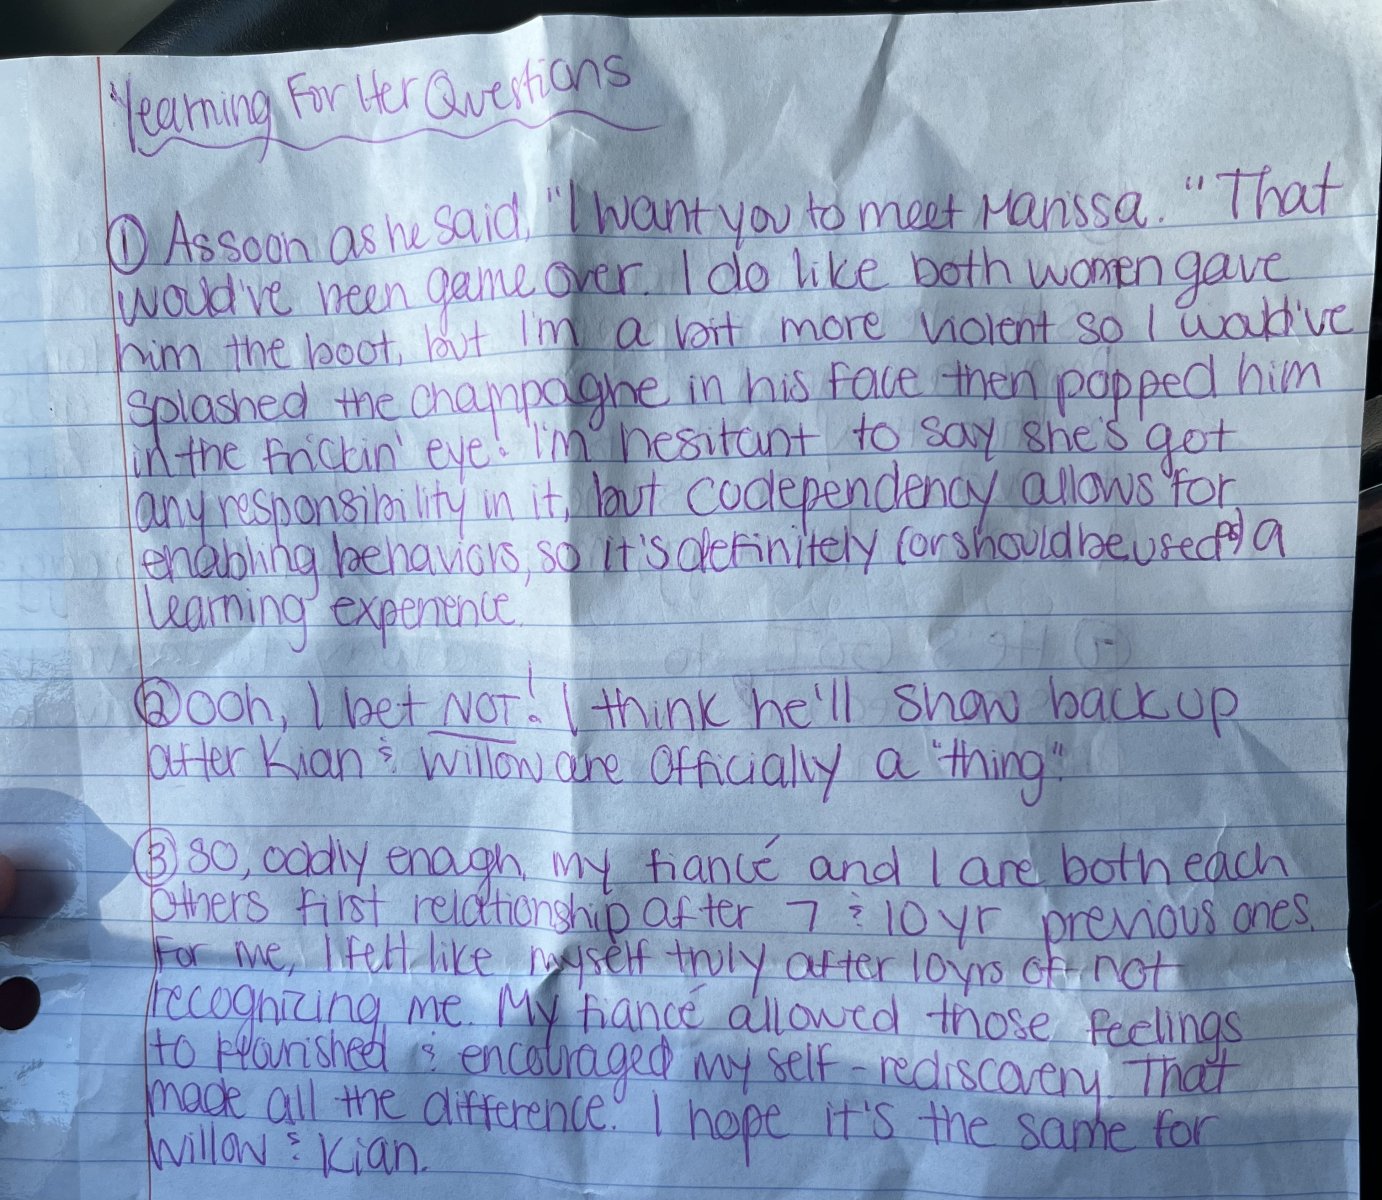 Yearning For Her Questions
① As soon as he said, "I want you to meet Marissa." That
would've been game over. I do like both women gave
him the boot, but I'm a bit more violent so I would've
splashed the champagne in his face then popped him
in the frickin' eye! I'm hesitant to say she's got
any responsibility in it, but codependency allows for
enabling behaviors, so it's definitely (or should be used as) a
learning experience.
② Ooh, I bet NOT! I think he'll show back up
after Kian & Willow are officially a "thing".
③ So, oddly enough, my fiancé and I are both each
others first relationship after 7 & 10 yr previous ones.
For me, I felt like myself truly after 10yrs of not
recognizing me. My fiancé allowed those feelings
to flourished & encouraged my self-rediscovery. That
made all the difference. I hope it's the same for
Willow & Kian.